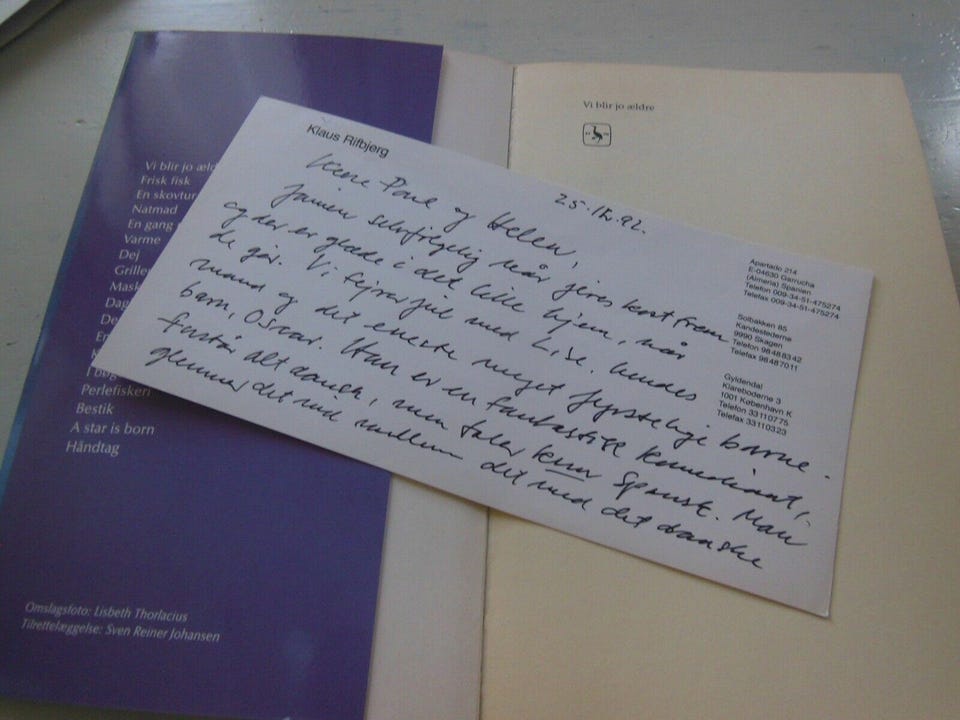 Vi blir jo æld
Frisk fisk
En skovtur
Natmad
En gang
Varme
Dej
Griller
Mask
Dag
De
En
K
I bøg
Perlefiskeri
Bestik
A star is born
Håndtag
Omslagsfoto: Lisbeth Thorlacius
Tilrettelæggelse: Sven Reiner Johansen
Vi blir jo ældre
Klaus Rifbjerg
25. 12. 92.
Kære Poul og Helen,
Jamen selvfølgelig når jeres kort frem
og der er glæde i det lille hjem, når
de gør. Vi fejrer jul med Lise, hendes
mand og det eneste meget fyrstelige barne-
barn, Oscar. Han er en fantastisk komediant,
forstår alt dansk, men taler kun spansk. Man
glemmer det ind mellem det med det danske
Apartado 214
E-04630 Garrucha
(Almeria) Spanien
Telefon 009-34-51-475274
Telefax 009-34-51-475274
Solbakken 85
Kandestederne
9990 Skagen
Telefon 98488342
Telefax 98487011
Gyldendal
Klareboderne 3
1001 København K
Telefon 33110775
Telefax 33110323